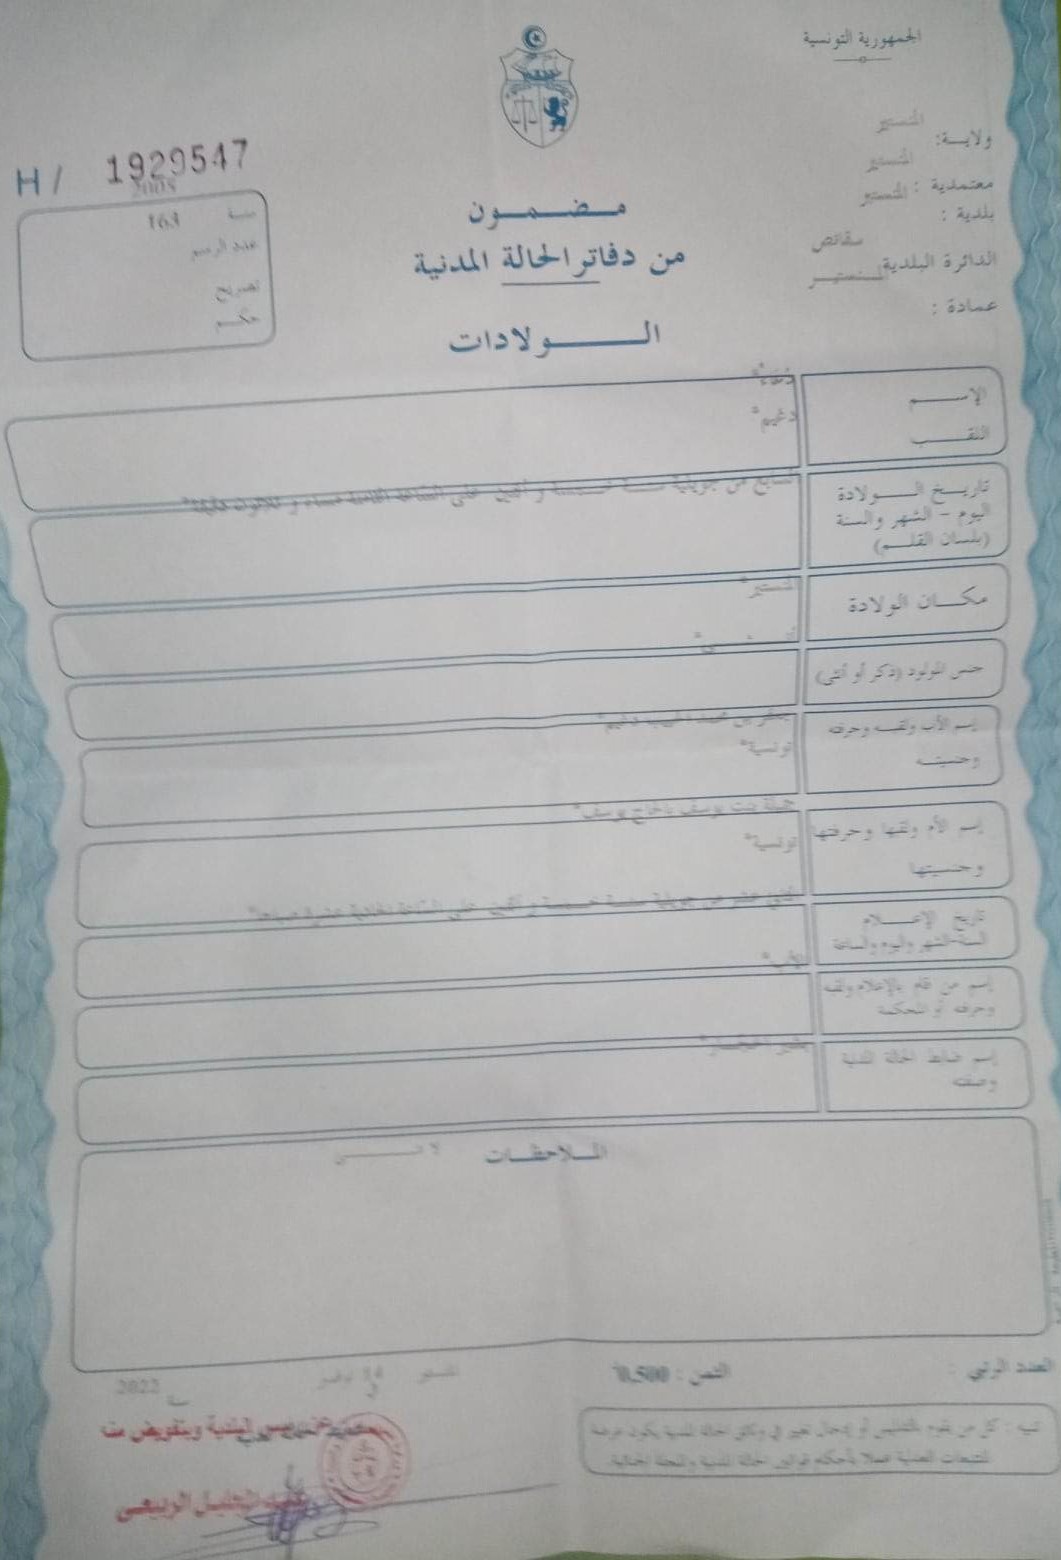 الجمهورية التونسية
ولاية: المنستير
معتمدية: المنستير
بلدية: المنستير
الدائرة البلدية سقانص
عمادة: المنستير
H / 1929547
سنة 2005
عدد الرسم 163
تصريح
حكم
مضمون
من دفاتر الحالة المدنية
الولادات
الإسم
اللقب دغيم*
تاريخ الولادة
اليوم - الشهر والسنة
(بلسان القلم)
السابع من جويلية سنة خمسة و ألفين على الساعة الثامنة مساء و ثلاثون دقيقة*
مكان الولادة المنستير*
جنس المولود (ذكر أو أنثى) أنثى*
إسم الأب ولقبه وحرفته
وجنسيته
بن محمد الحبيب دغيم*
تونسية*
إسم الأم ولقبها وحرفتها
وجنسيتها
جميلة بنت يوسف بالحاج يوسف*
تونسية*
تاريخ الإعلام
السنة-الشهر واليوم والساعة
عشر من جويلية سنة خمسة و ألفين على الساعة الحادية عشرة صباحا*
إسم من قام بالإعلام ولقبه
وحرفته أو المحكمة
الأب*
إسم ضابط الحالة المدنية
وصفته
الملاحظات
العدد الرتبي :
الثمن : 0,500
المنستير في 14 نوفمبر سنة 2022
تنبيه : كل من يقوم بالتدليس أو إدخال تغيير في وثائق الحالة المدنية يكون عرضة
للتتبعات العدلية عملا بأحكام قوانين الحالة المدنية والمجلة الجنائية.
البلدية وبتفويض منه
الربعي